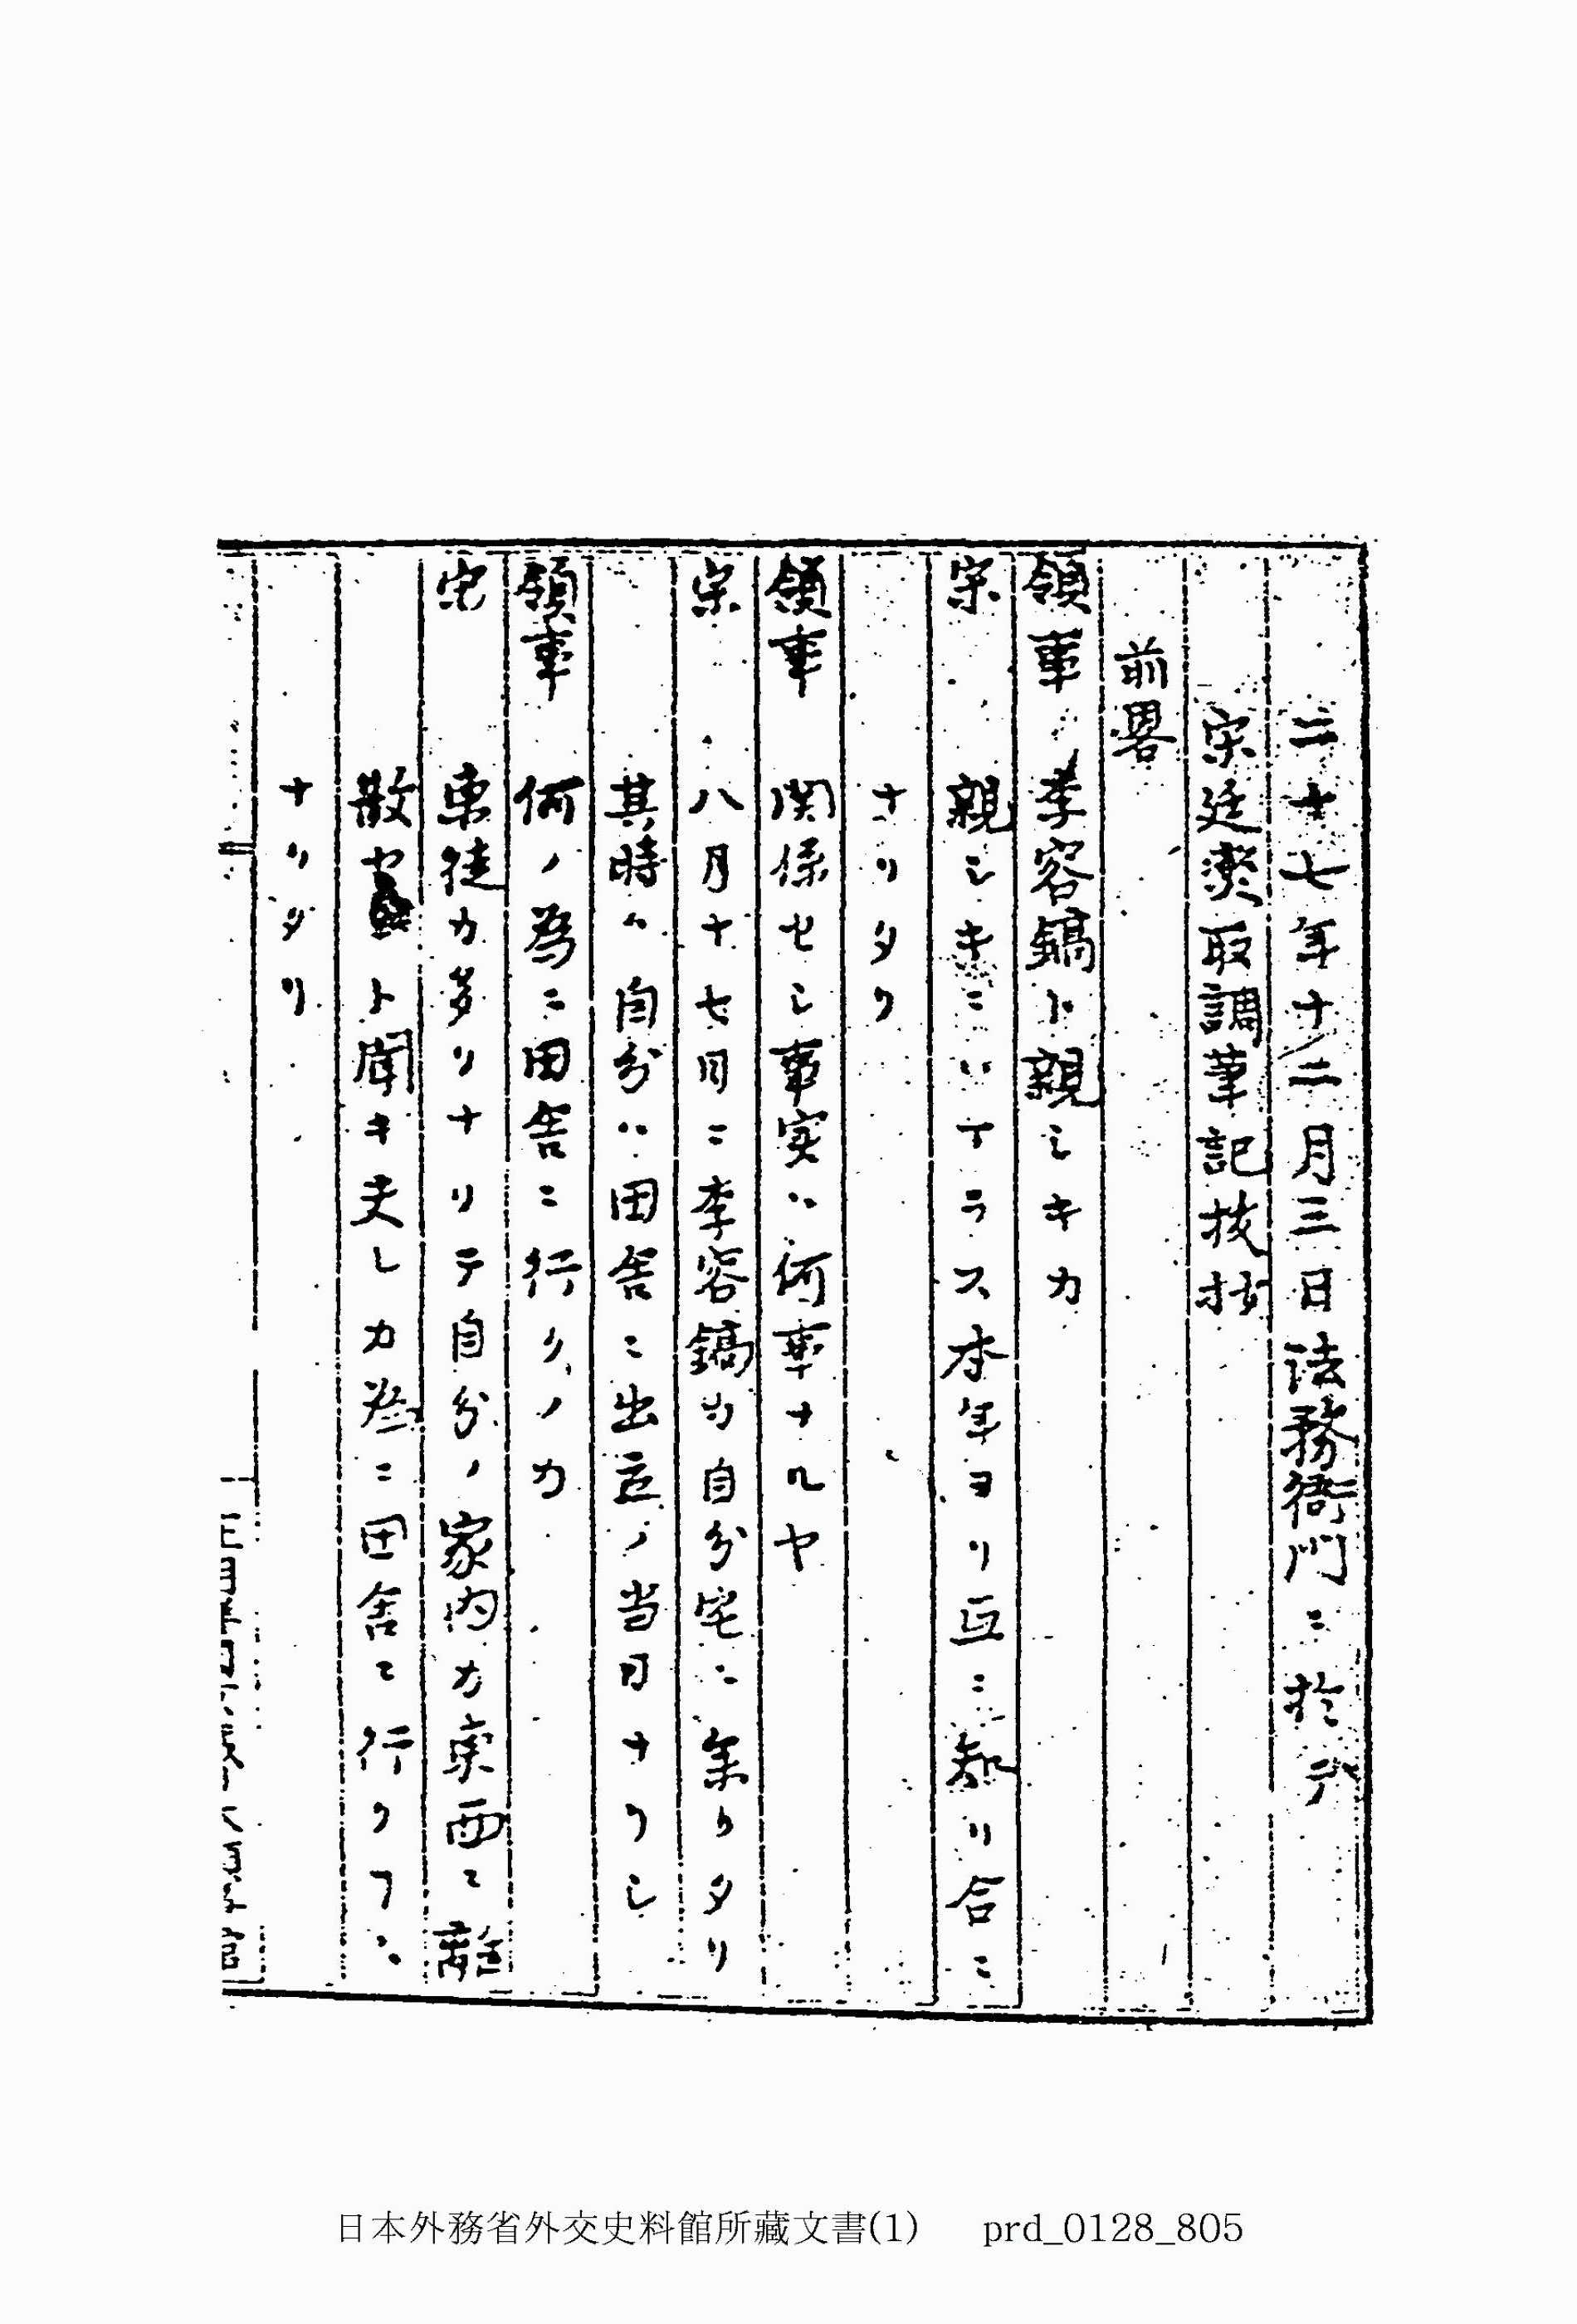 二十七年十二月三日法務衙門ニ於テ
宋廷燮取調筆記抜抄
前畧
領事 李容鎬ト親シキカ
宋 親シキニハアラス本年ヨリ互ニ知リ合ニ
ナリタリ
領事 関係セシ事実ハ何事ナルヤ
宋 八月十七日ニ李容鎬カ自分宅ニ来リタリ
其時ハ自分ハ田舎ニ出立ノ当日ナリシ
領事 何ノ為ニ田舎ニ行クノカ
宋 東徒カ多クナリテ自分ノ家内カ東西ニ離
散セ ト聞キ夫レカ為ニ田舎ニ行クコニ
ナリタリ
日本外務省外交史料館所藏文書(1) prd_0128_805